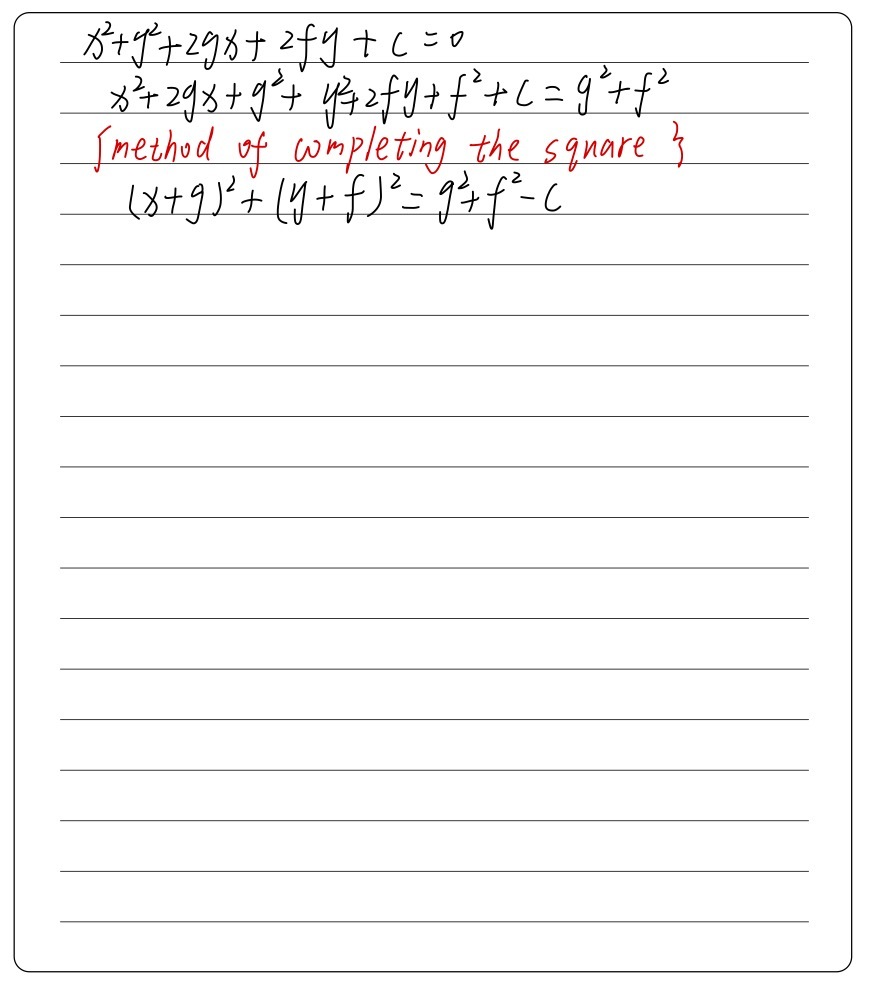 x²+y²+2gx+2fy+c=0
x²+2gx+g²+y²+2fy+f²+c=g²+f²
{method of completing the square}
(x+g)²+(y+f)²=g²+f²-c